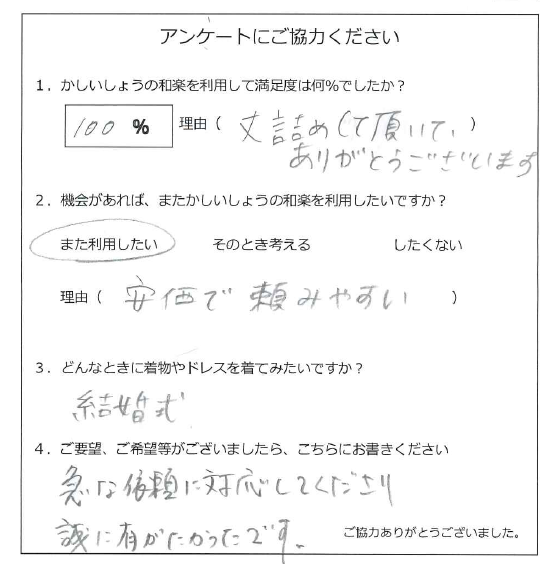 アンケートにご協力ください
1．かしいしょうの和楽を利用して満足度は何%でしたか？
100 % 理由（ 丈詰めして頂いて、 ）
ありがとうございます
2．機会があれば、またかしいしょうの和楽を利用したいですか？
また利用したい そのとき考える したくない
理由（ 安価で頼みやすい ）
3．どんなときに着物やドレスを着てみたいですか？
結婚式
4．ご要望、ご希望等がございましたら、こちらにお書きください
急な依頼に対応してくださり
誠に有がたかったです。
ご協力ありがとうございました。